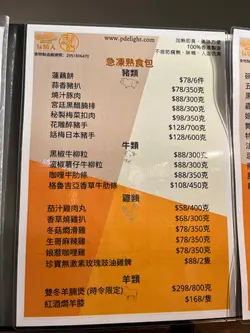 www.pdelight.com
急凍熟食包
豬類
蓮藕餅 $78/6件
蒜香豬扒 $78/350克
燒汁豚肉 $78/350克
宮廷黑醋腩排 $88/300克
秘製梅菜扣肉 $98/350克
花雕醉豬手 $128/700克
話梅日本豬手 $128/600克
牛類
黑椒牛柳粒 $88/300克
蜜椒薯仔牛柳粒 $88/300克
咖喱牛肋條 $88/350克
格魯吉亞香草牛肋條 $108/450克
雞類
茄汁雞肉丸 $58/400克
香草燒雞扒 $68/300克
冬菇燜滑雞 $78/350克
生哥麻辣雞 $78/350克
娘惹咖喱雞 $78/350克
珍寶無激素玫瑰豉油雞髀 $88/2隻
羊類
雙冬羊腩煲 (時令限定) $298/800克
紅酒燜羊膝 $168/隻